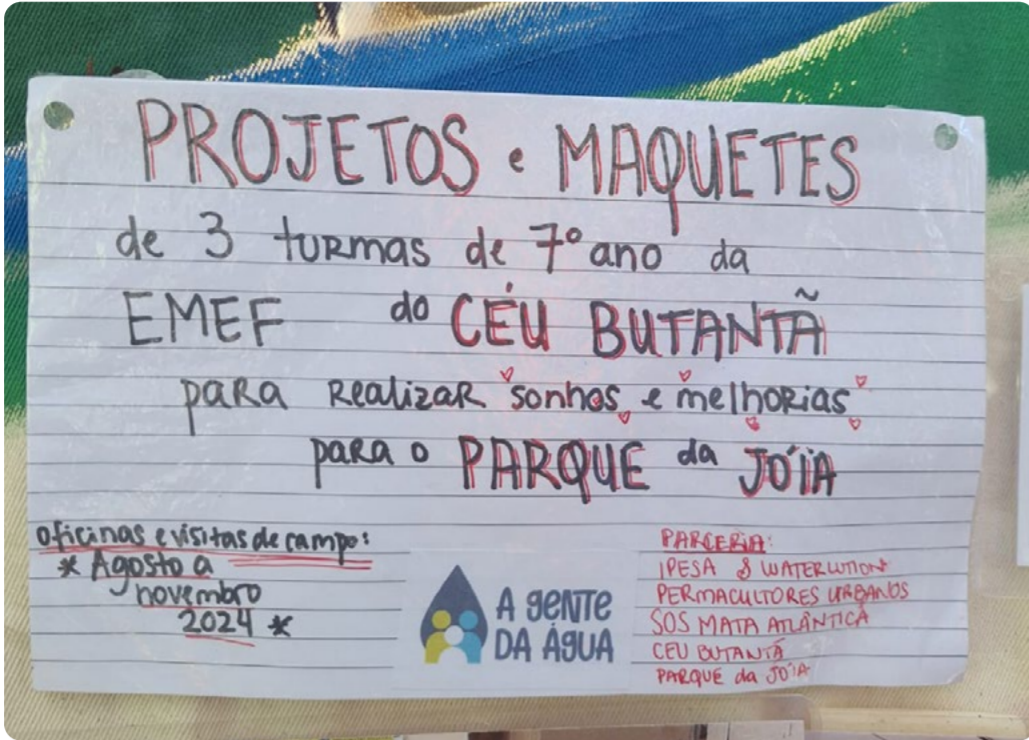 PROJETOS e MAQUETES
de 3 turmas de 7º ano da
EMEF do CÉU BUTANTÃ
para Realizar sonhos e melhorias
para o PARQUE da JÓIA
oficinas e visitas de campo:
* Agosto a
novembro
2024 *
A gente
DA ÁGUA
PARCERIA:
IPESA & WATERLUTION
PERMACULTORES URBANOS
SOS MATA ATLÂNTICA
CEU BUTANTÃ
PARQUE da JÓIA